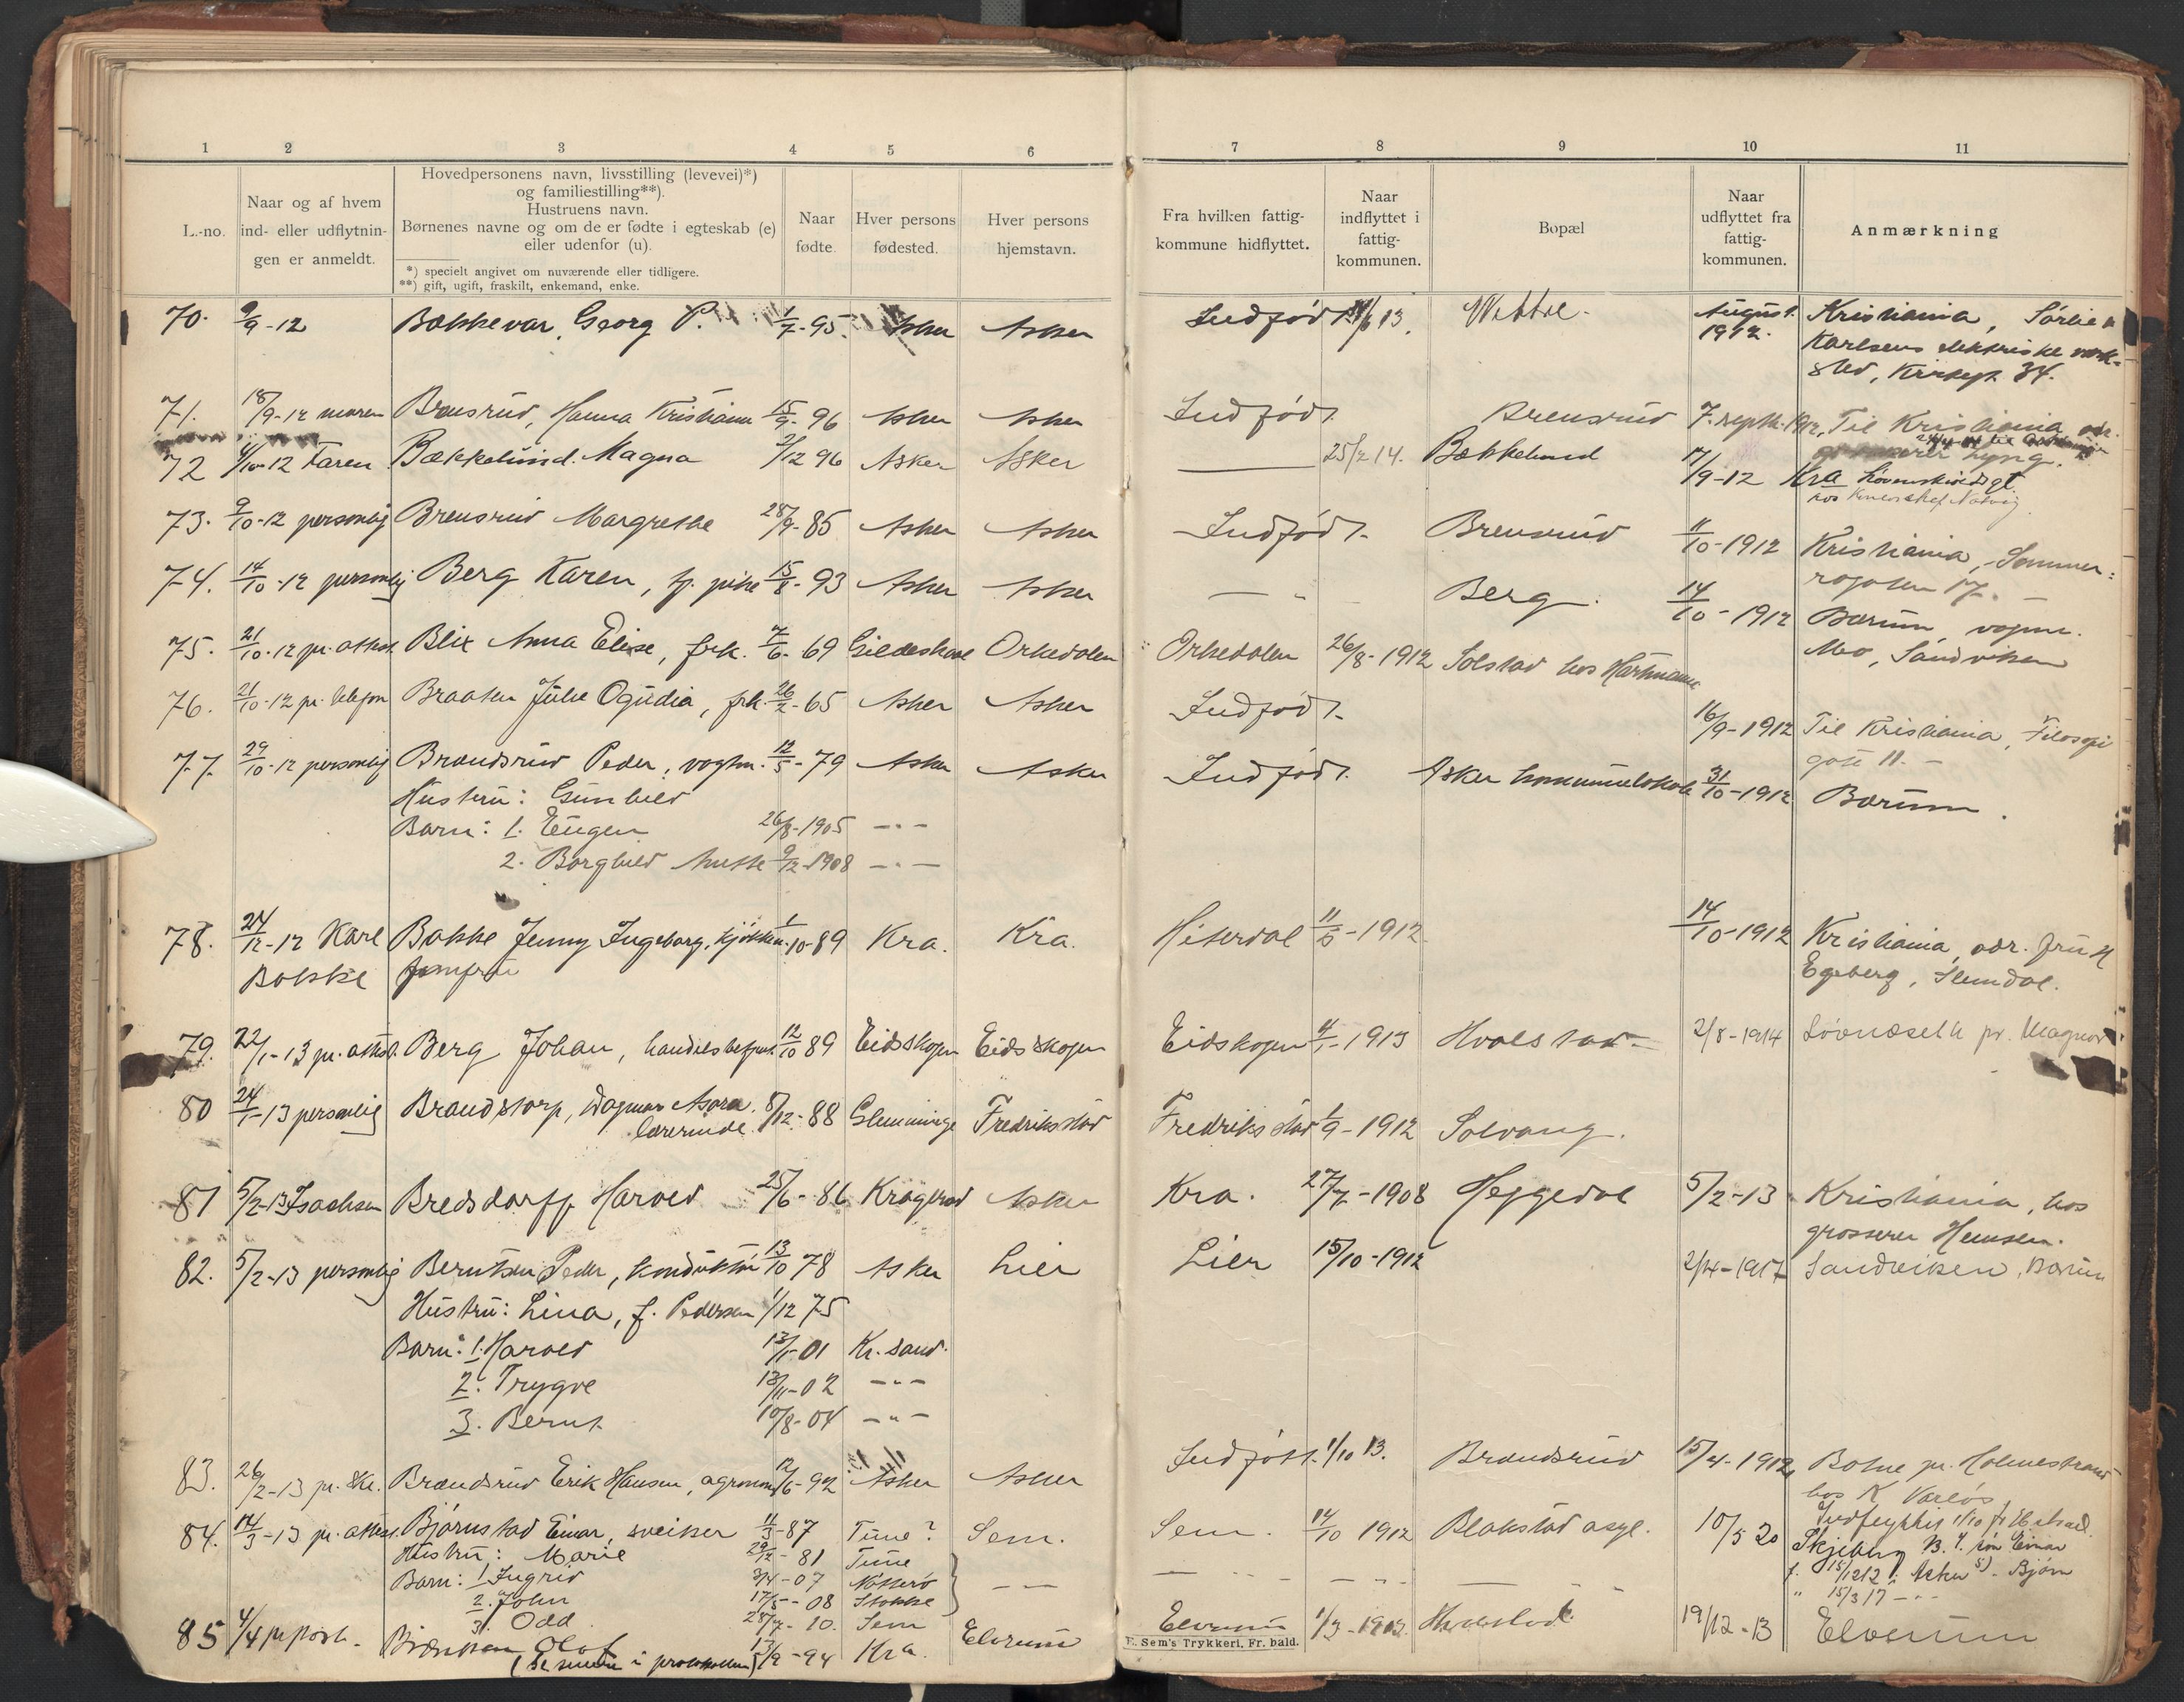 1 2 3 4 5 6 7 8 9 10 11
L.-no.
Naar og af hvem
ind- eller udflytnin-
gen er anmeldt.
Hovedpersonens navn, livsstilling (levevei)*)
og familiestilling**).
Hustruens navn.
Børnenes navne og om de er fødte i egteskab (e)
eller udenfor (u).
*) specielt angivet om nuværende eller tidligere.
**) gift, ugift, fraskilt, enkemand, enke.
Naar
fødte.
Hver persons
fødested.
Hver persons
hjemstavn.
Fra hvilken fattig-
kommune hidflyttet.
Naar
indflyttet i
fattig-
kommunen.
Bopæl
Naar
udflyttet fra
fattig-
kommunen.
Anmærkning
70. 9/9-12 Bækkevar, Georg P. 1/7-95. Asker Asker Indfødt 13. August 1912. Kristiania, Sørlie &
Karlsens elektriske verk-
sted, 34.
71. 18/9-12 moren Brensrud, Hanna Kristiane 15/9-96 Asker Asker Indfødt. Brensrud 7. septbr. 1912. Til Kristiania adr.
72 4/10-12 Faren Bækkelund. Magna 2/12 96 Asker Asker 25/2 14. Bækkelund 17/9-12 Kra
hos
73. 9/10-12 personlig Brensrud Margrethe 28/9-85 Asker Asker Indfødt. Brensrud 11/10-1912 Kristiania, Sommer-
rogaten 17.
74. 14/10-12 personlig Berg Karen, tj. pike 15/8-93 Asker Asker — " — Berg. 14/10-1912 Bærum, vognm.
Mo, Sandviken
75. 21/10-12 pr. attest Blix Anna Elise, frk. 7/6-69 Gildeskaal Orkedalen Orkedalen 26/8-1912 Solstad hos Hartmann
76. 21/10-12 pr. telefon Braaten Julie Ogudia, frk. 26/2-65 Asker Asker Indfødt. 16/9-1912 Til Kristiania, Filosofi
gate 11. —
77. 29/10-12 personlig Brændsrud Peder, vogtm. 12/5-79 Asker Asker Indfødt. Asker kommunelokale 31/10-1912 Bærum.
Hustru: Gunhild
Barn: 1. Eugen 26/8-1905 — " —
2. Borghild 9/12-1908 — " —
78. 24/12-12 Karl Bakke Jenny Ingeborg, kjøkken- 1/10-89 Kra. Kra. Hiterdal 1912. 14/10-1912 Kristiania, adr. fru H
Bakke jomfru Egeberg, Slemdal.
79. 22/1-13 pr. attest. Berg Johan, handelsbetjent 12/10 89 Eidskogen Eidskogen Eidskogen 4/1-1913 Hvalstad— 2/8-1914 Løvnæseth pr. Magnor
80 24/1-13 personlig Brandstorp, Dagmar Asora. 8/12-88 Glemminge Fredrikstad Fredrikstad 1/9-1912 Solvang.
lærerinde.
81 5/2-13 Isachsen Bredsdorff Harald 25/6-86 Kragerød Asker Kra. 27/7-1908 Heggedal 5/2-13 Kristiania, hos
grosserer Hemsen.
82. 5/2-13 personlig Berntsen Peder, konduktør 13/10 78 Asker Lier Lier 15/10-1912 2/4-1917 Sandviken, Bærum
Hustru: Lina, f. Pedersen 1/12 75
Barn: 1. Harald 13/1-01 Kr. sand.
2. Trygve 13/11-02 — " —
3. Bernt 10/8-04 — " —
83. 26/2-13 pr. Brændsrud Erik Hansen, agronom 12/6-92 Asker Asker Indfødt. 1/10 13. Brændsrud 15/4-1912, Botne pr. Holmestrand
hos K
84. 14/3-13 pr. attest. Bjørnstad Einar, sveiser 11/3-87 Tune? Sem. Sem. 14/10 1912 Blakstad asyl. 10/5 20 Skjeberg B. 4. søn Einar
Hustru: Marie 29/12-81 Tune
f. 15/12 12 i Asker 5) - Bjørn
Barn: 1. Ingrid 3/4-07 Nøtterø
" 15/3 17 — " —
2. John 17/5-08 Stokke
3. Odd 28/7-10. Sem
85 4/4 pr post. Olaf 13/9-94 Kra. Elverum Elverum 1/3-1913. Hvalstad 19/12-13 Elverum
(se senere i protokollen)
E. Sem's Trykkeri, Fr. hald.